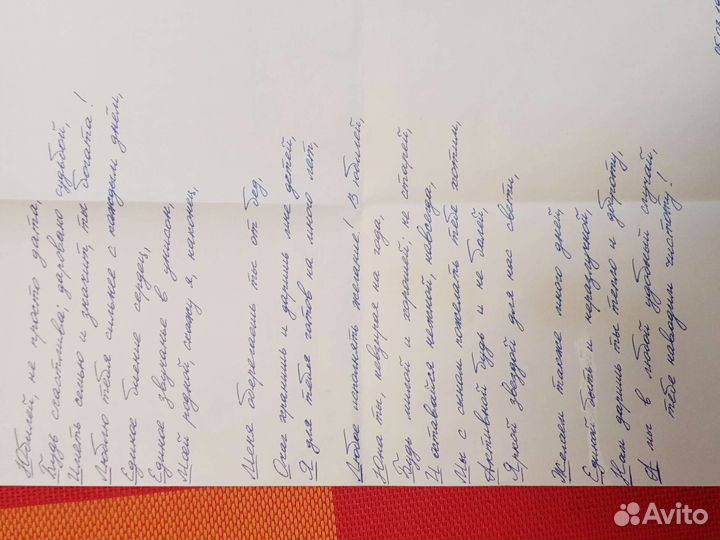 Юбилей, не просто дата,
Будь счастлива, даровано судьбой,
Иметь семью и значит, ты богата!
Люблю тебя сильнее с каждым днём,
Единое биение сердец,
Единое звучание в унисон,
Мой родной, скажу я, наконец,
Меня оберегаешь ты от бед,
Очаг хранишь и даришь мне детей,
Я для тебя готов на много лет,
Любое исполнять желание! В юбилей,
Юна ты, невзирая на года,
Будь милой и хорошей, не старей,
И оставайся нежной, навсегда,
Мы с сыном пожелать тебе хотим,
Активной будь и не болей,
Яркой звездой для нас свети,
Желаем также много дней,
Единой быть и неразлучной,
Нам даришь ты тепло и доброту,
А мы в любой удобный случай,
тебе наводим чистоту!
05.03.
Avito